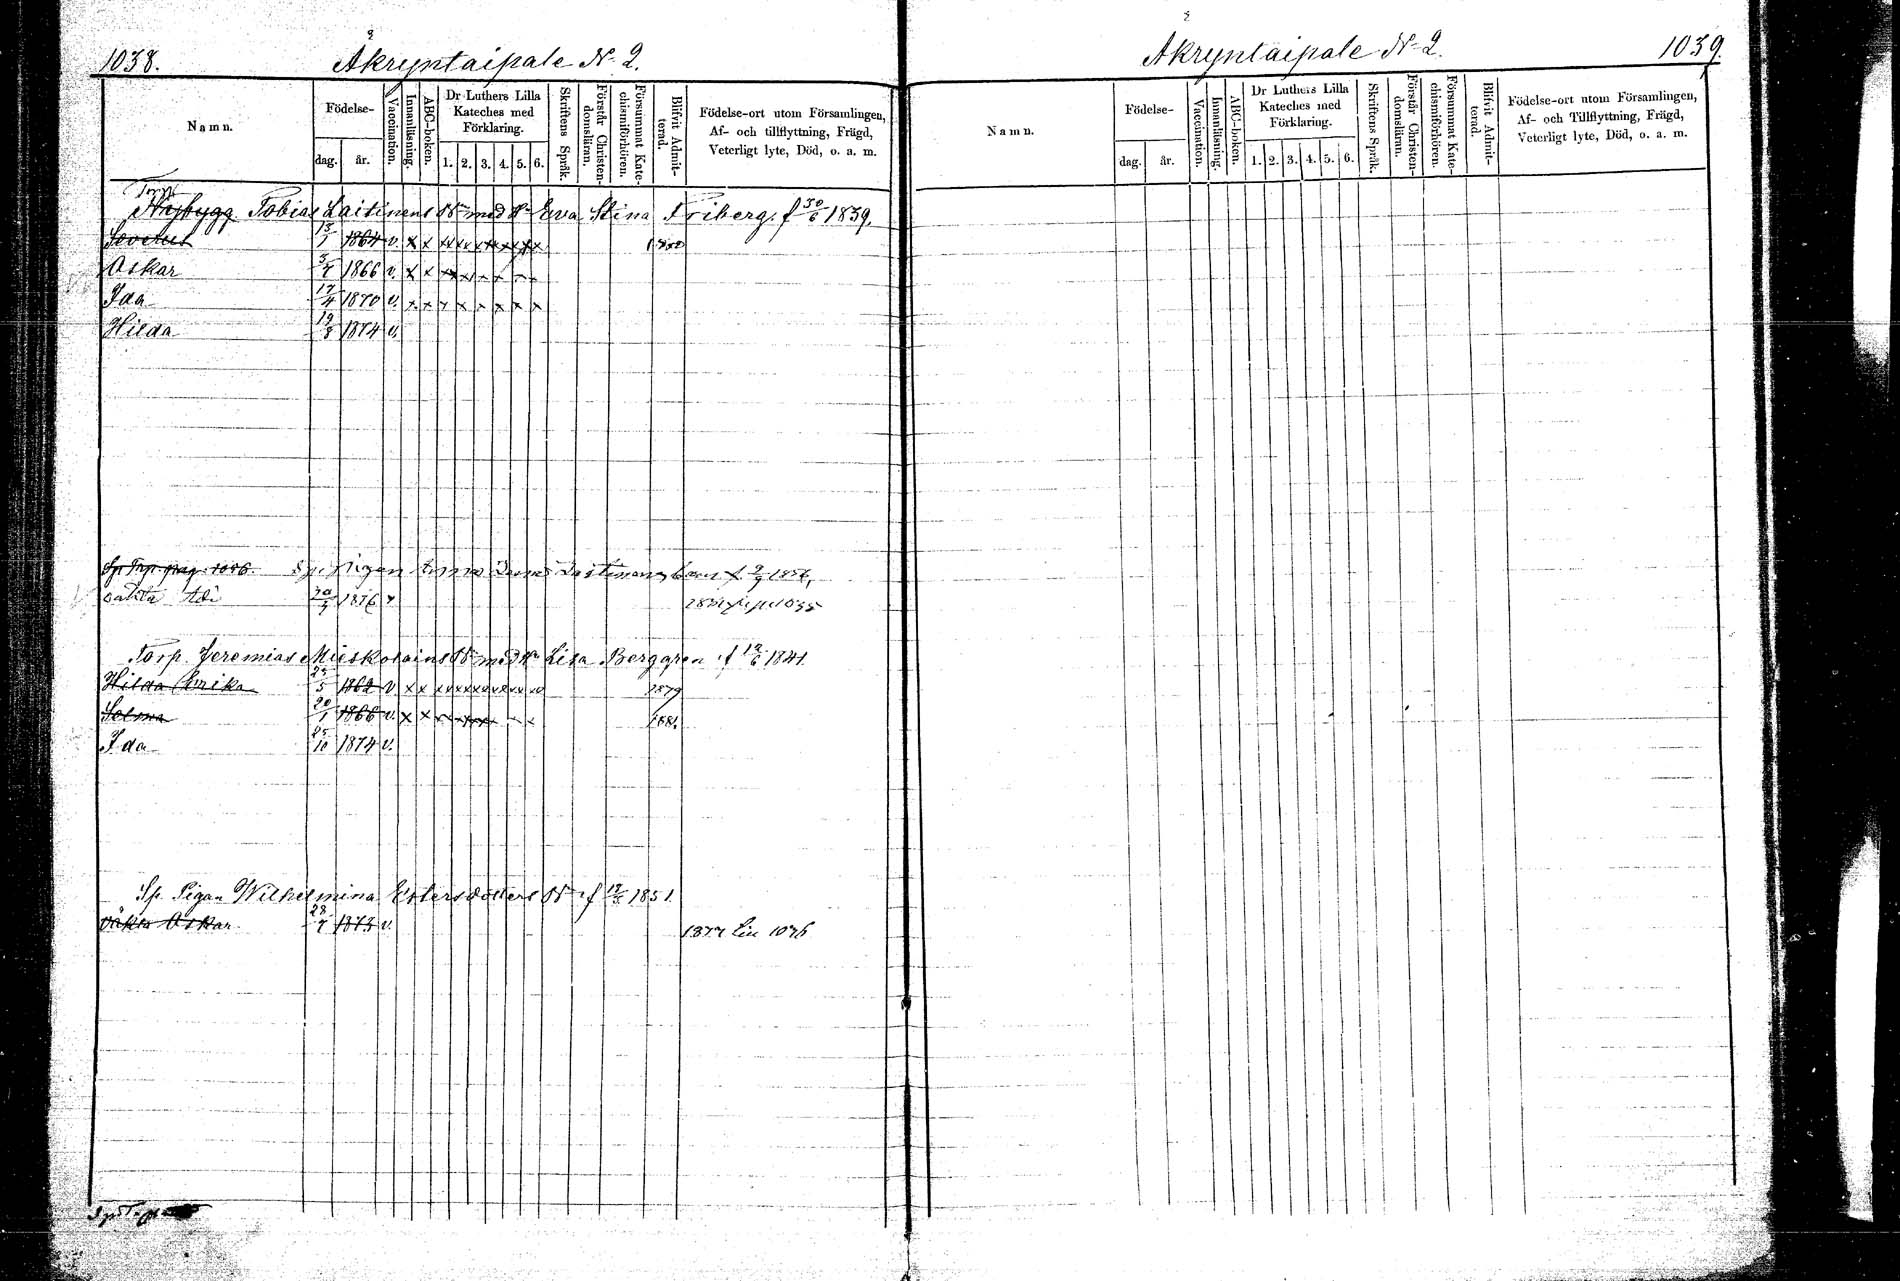 1038. Åkryntaipale N:o 2.
Namn. Födelse- dag. år. Vaccination. Innanläsning. ABC-boken. Dr Luthers Lilla Kateches med Förklaring. 1. 2. 3. 4. 5. 6. Skriftens Språk. Förstår Christendomsläran. Försummat Katechismiförhören. Blifvit Admitterad. Födelse-ort utom Församlingen, Af- och tillflyttning, Frägd, Veterligt lyte, Död, o. a. m.
Torp
Nybygg Tobias Laitinens Bn med H. Eva Stina Friberg. f 30/6 1839.
13/1 1864 v. x x
Oskar 5/7 1866 v. x x
Ida 17/4 1870 v. x x x x x x x x
Hilda 19/8 1874 v.
pag. 1086. Sp. pigan Anna f. 9/9 1856,
oäkta 1876 v
Torp. Jeremias Mieskolains Bn med Hu Lisa Berggren f 12/6 1841.
Hilda Erika 23/5 1862 v x x 1879
Selma 20/1 1866 v. x x 1881.
Ida 25/10 1874 v.
Sp. Pigan Wilhelmina Estersdotters Bn f 1851.
oäkta Oskar 28/7 1873 v. 1877 1076
Åkryntaipale N:o 2. 1039.
Namn. Födelse- dag. år. Vaccination. Innanläsning. ABC-boken. Dr Luthers Lilla Kateches med Förklaring. 1. 2. 3. 4. 5. 6. Skriftens Språk. Förstår Christendomsläran. Försummat Katechismiförhören. Blifvit Admitterad. Födelse-ort utom Församlingen, Af- och Tillflyttning, Frägd, Veterligt lyte, Död, o. a. m.